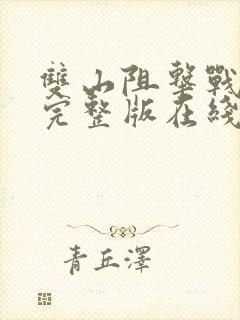 雙山阻擊戰
完整版在綫
青丘澤